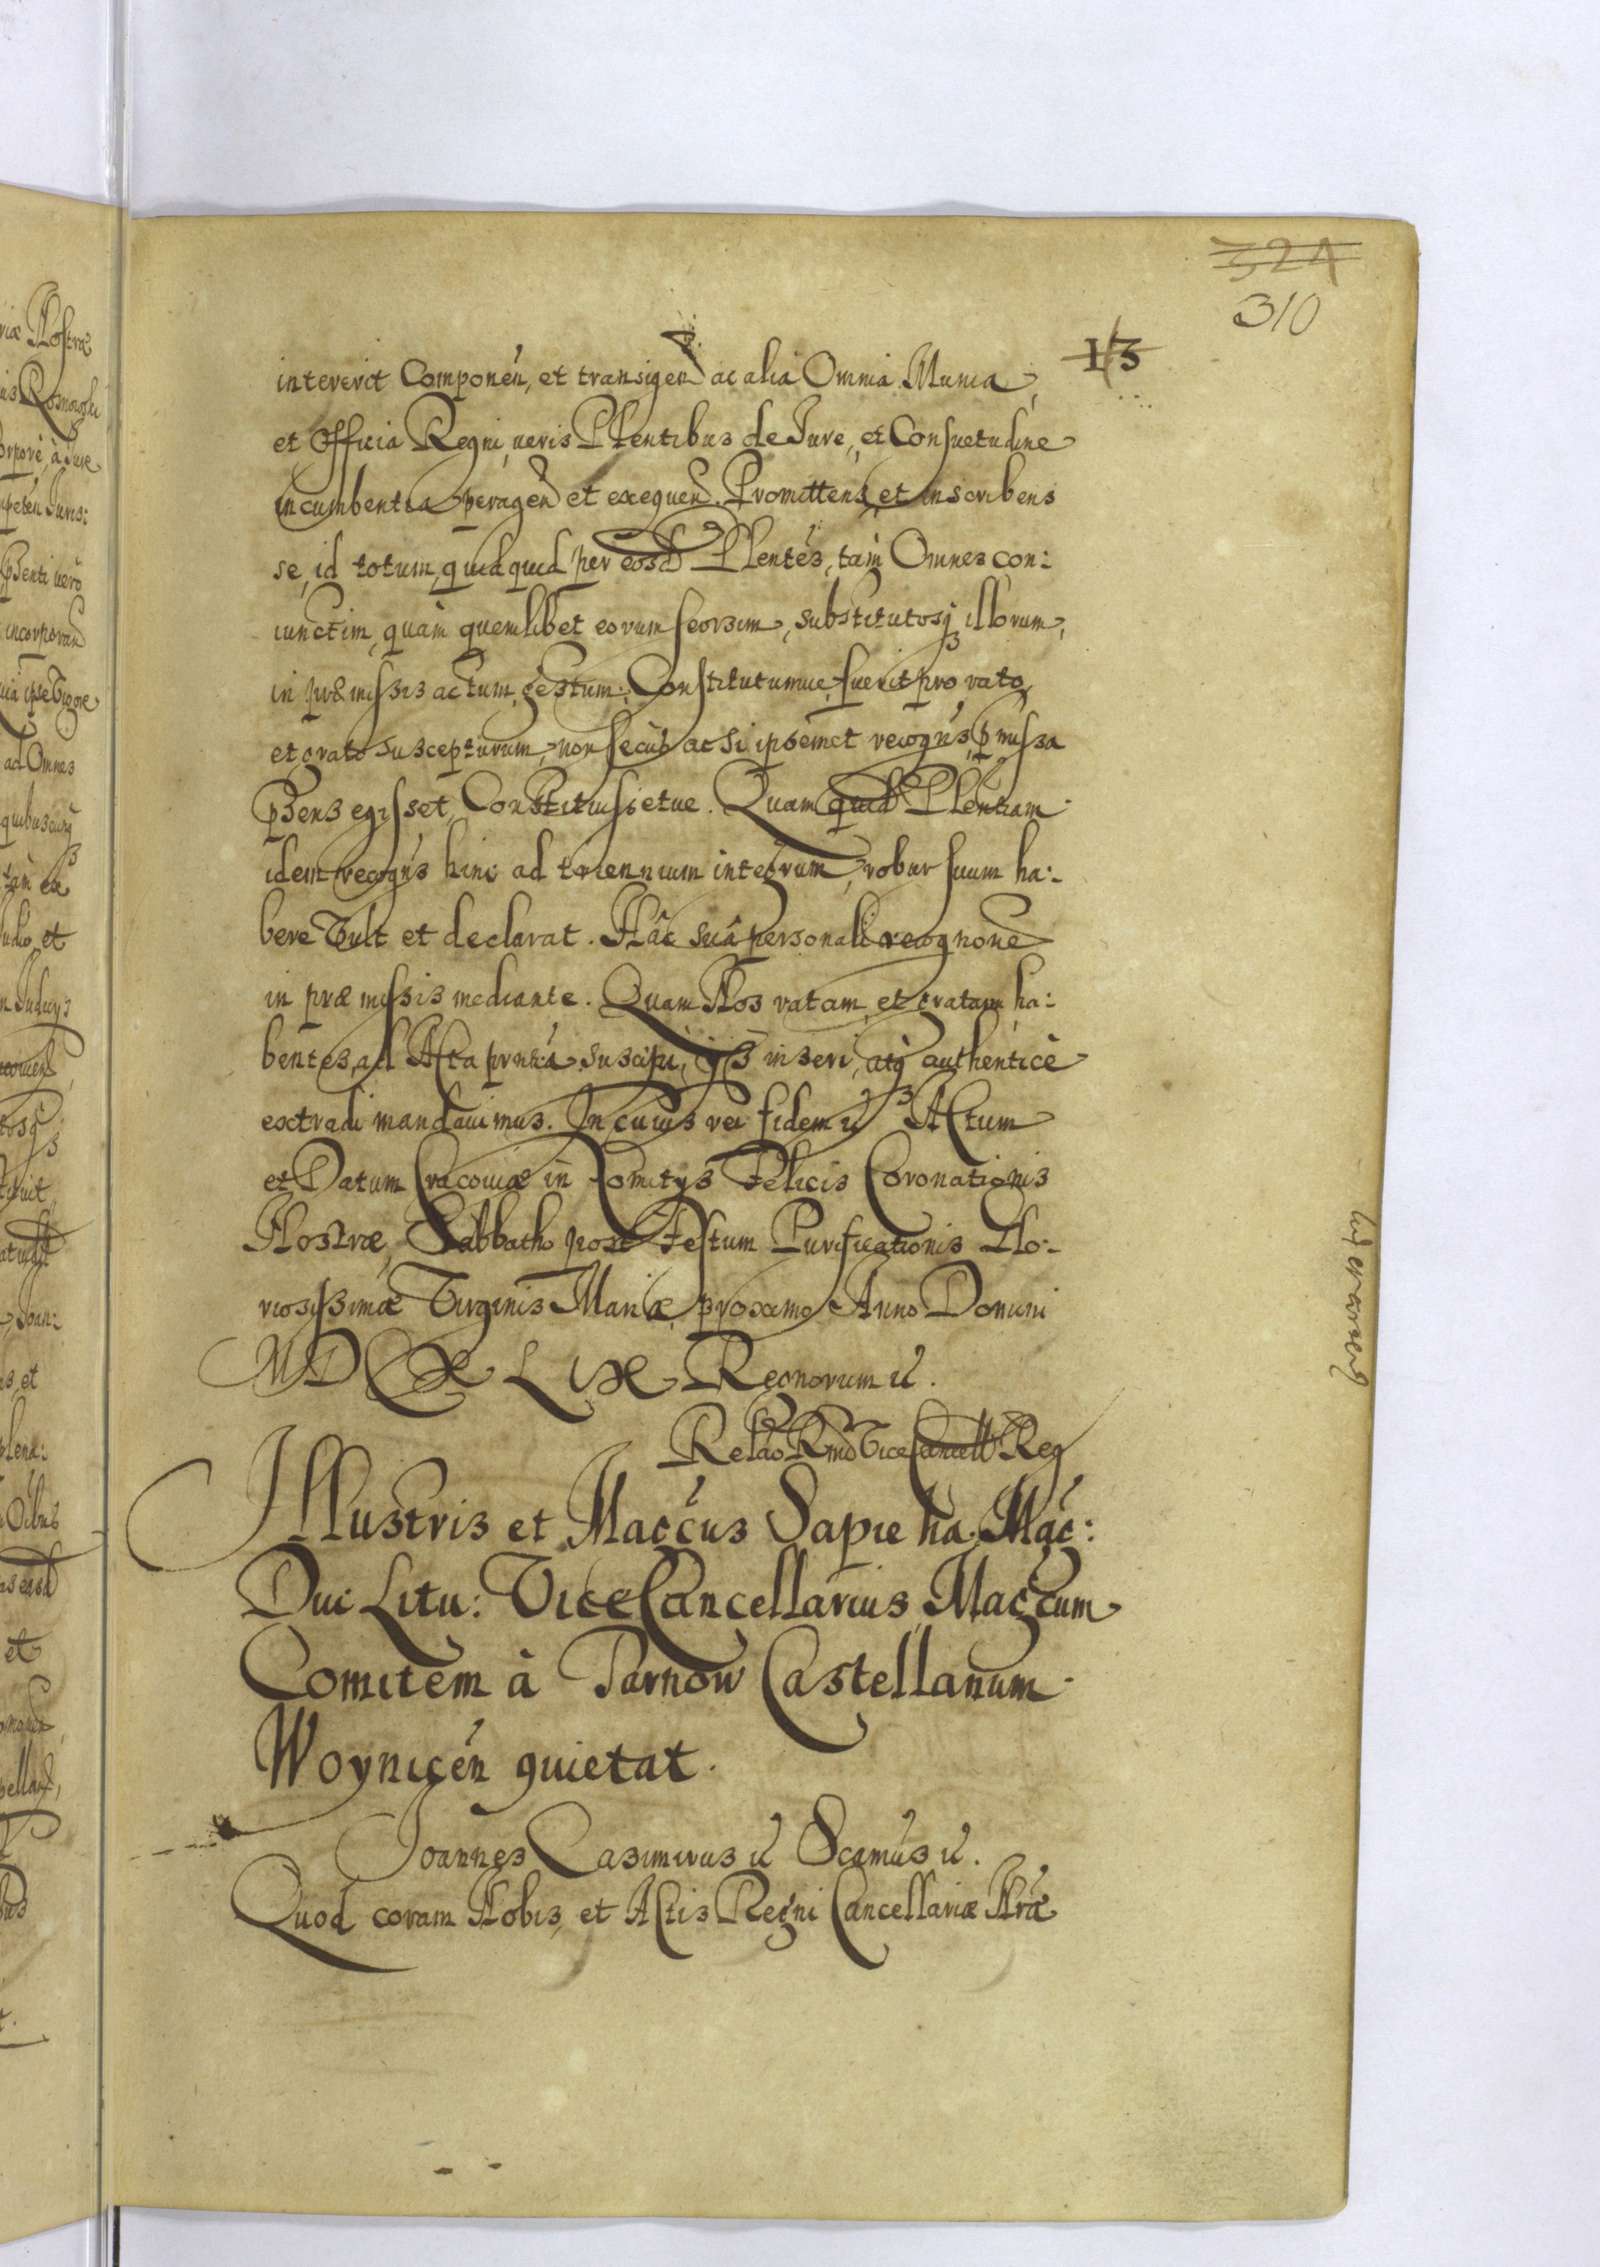 324
310
13
intererit Componen, et transigen ac alia Omnia Munia,
et Officia Regni, veris Plentibus de Iure, et Consuetudine
incumbentia peragen et exequen. Promittens, et inscribens
se, id totum, quidquid per eosd Plentes, tam Omnes con:
iunctim, quàm quemlibet eorum seorsim, substitutosq illorum,
in præmissis actum, gestum, Constitutumue fuerit pro rato,
et grato suscepturum, non secùs ac si ipsemet recogns pmissa
psens egisset, Constituissetue. Quam quid Plentiam
idem recogns hinc ad triennium integrum, robur suum ha:
bere Vult et declarat. Hâc suâ personali recognone
in præmissis mediante. Quam Nos ratam, et gratam ha:
bentes, ad Acta pntia suscipi, ijs inseri, atq authenticè
extradi mandauimus. In cuius rei fidem etc Actum
et Datum Cracouiæ in Comitijs Felicis Coronationis
Nostræ, Sabbatho post Festum Purificationis Glo:
riosissimæ Virginis Mariæ proximo Anno Domini
MDCXLIX Regnorum etc.
Relao Rmd ViceCancell Reg
Illustris et Magcus Sapieha Mag:
Duc Litu: ViceCancellarius, Magcum
Comitem à Tarnow Castellanum
Woynicen quietat.
Joannes Casimirus etc Scamus etc.
Quod coram Nobis, et Actis Regni Cancellariæ Nræ